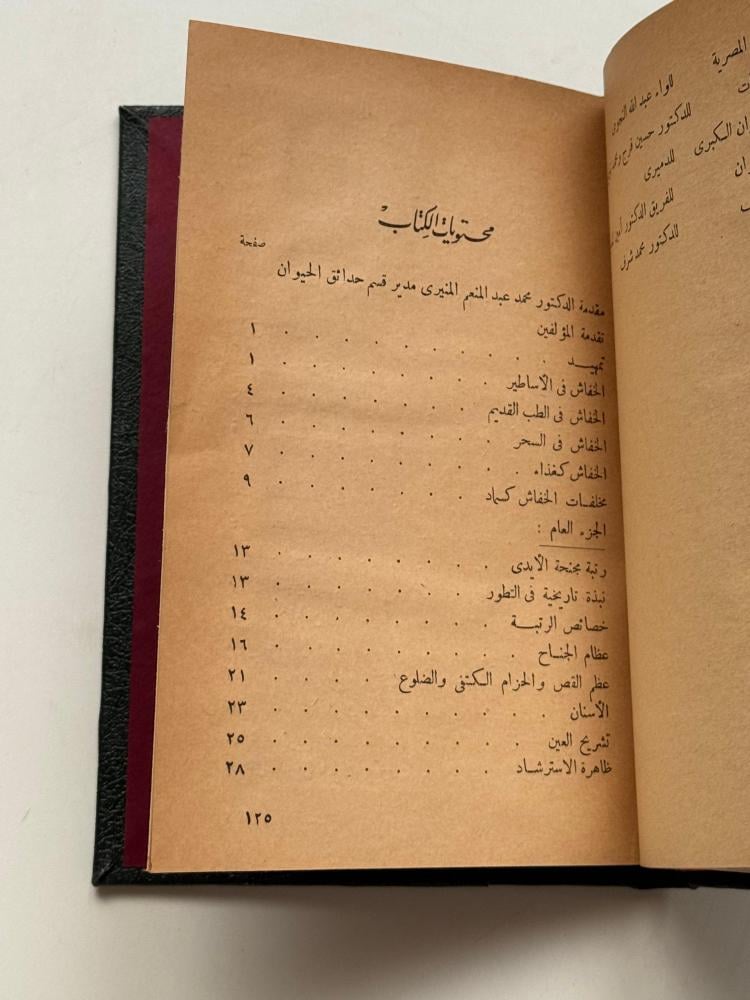 المصرية
للواء عبد الله النجومى
ت
للدكتور حسين فرج
ان الكبرى
للدميرى
ان
للفريق الدكتور
للدكتور محمد شرف
محتويات الكتاب
صفحة
مقدمة الدكتور محمد عبد المنعم المنيرى مدير قسم حدائق الحيوان
تقدمة المؤلفين
تمهيـــد . . . . . . . . . . ١
الخفاش فى الأساطير . . . . . . . . ١
الخفاش فى الطب القديم . . . . . . . . ٤
الخفاش فى السحر . . . . . . . . ٦
الخفاش كغذاء . . . . . . . . ٧
مخلفات الخفاش كسماد . . . . . . . ٩
الجزء العام :
رتبة مجنحة الأيدى . . . . . . . . ١٣
نبذة تاريخية فى التطور . . . . . . . . ١٣
خصائص الرتبـــة . . . . . . . . ١٤
عظام الجنـاح . . . . . . . . . ١٦
عظم القص والحزام الـكتفى والضلوع . . . . . ٢١
الأسنان . . . . . . . . . . ٢٣
تشريح العين . . . . . . . . . ٢٥
ظاهرة الاسترشـاد . . . . . . . . ٢٨
١٢٥